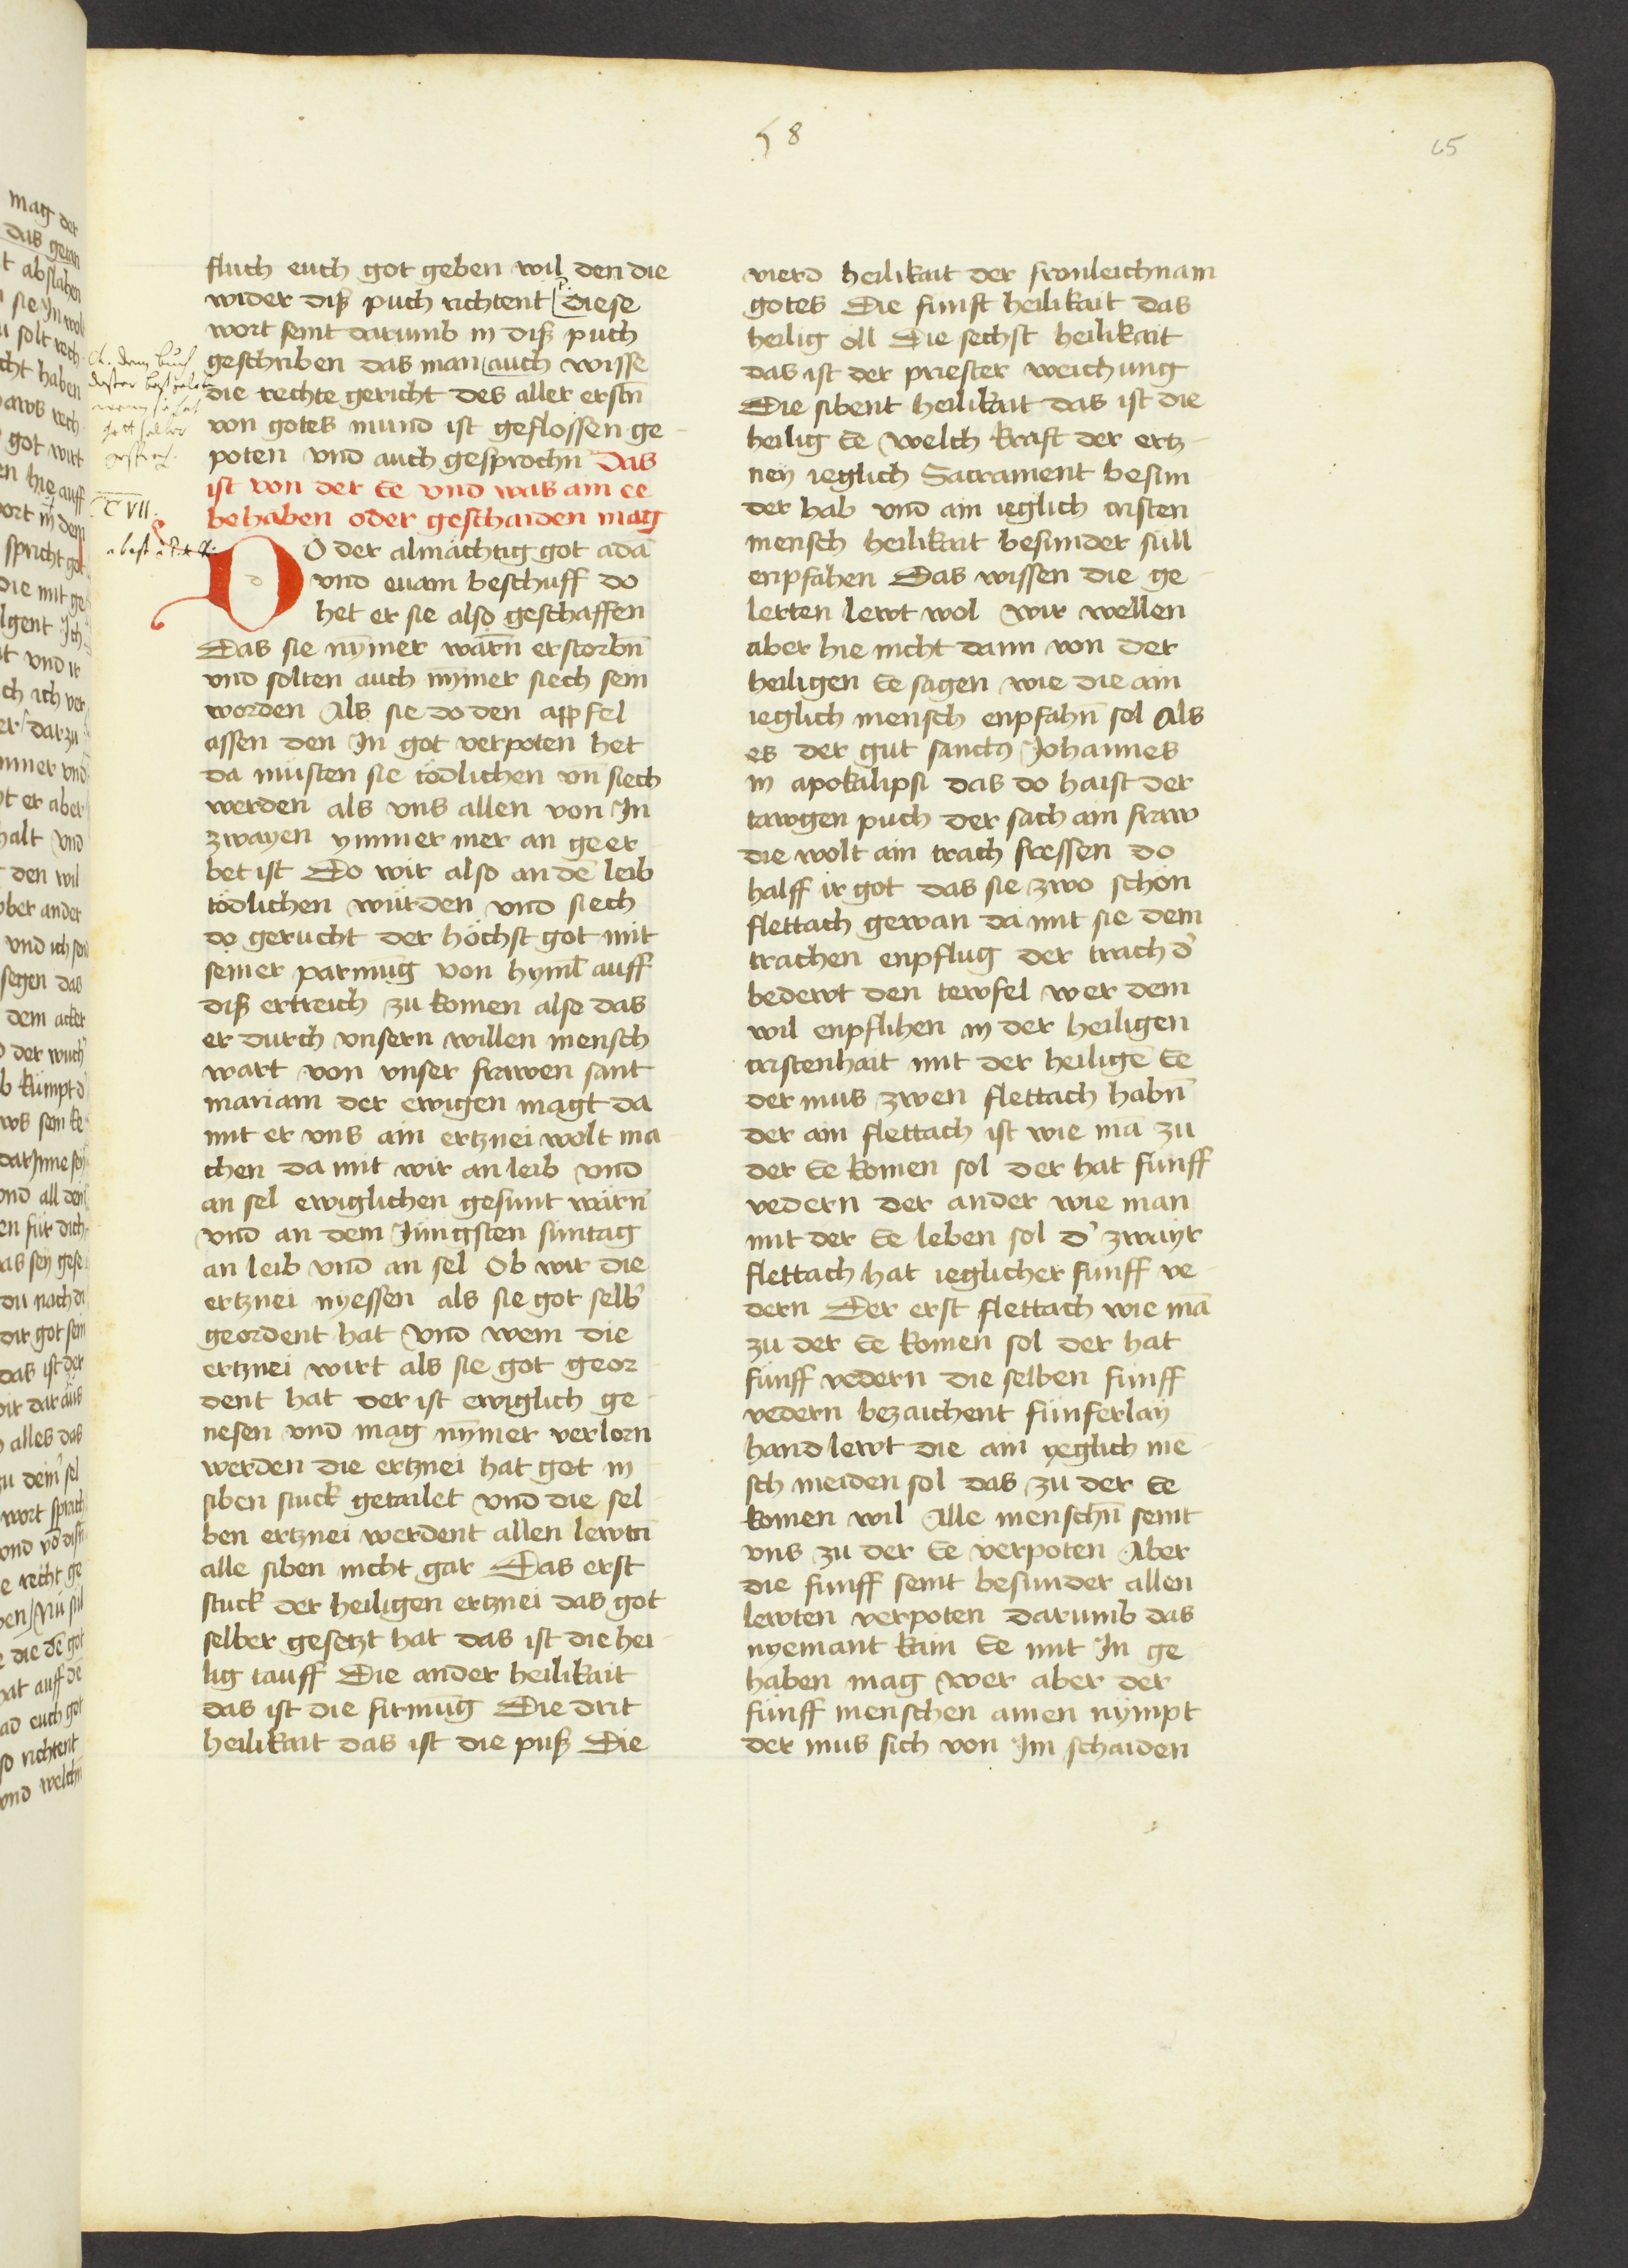 58
65
fluch euch got geben wil den die
wider diß puch richtent diese
wort seint darumb in diß puch
geschriben das man auch wisse
die rechte gericht des aller erstn̄
von gotes mund ist geflossen ge-
poten vnd auch gesprochn̄ Das
ist von der Ee vnd was ain ee
behaben oder geschaiden mag
DO der almächtig got adā
vnd euam beschuff do
het er sie also geschaffen
Das sie nȳmer wärn̄ erstorbn̄
vnd solten auch nȳmer siech sein
worden Als sie do den appfel
assen den In got verpoten het
da müsten sie tödlichen vn̄ siech
werden als vns allen von In
zwayen ymmer mer an geer-
bet ist Do wir also an dē leib
tödlichen würden vnd siech
do gerucht der höchst got mit
seiner parmūg von hyml̄ auff
diß ertreich zu komen also das
er durch vnsern willen mensch
wart von vnser frawen sant
mariam der ewigen magt da
mit er vns ain ertznei wolt ma-
chen da mit wir an leib vnd
an sel ewiglichen gesunt wärn̄
vnd an dem Jüngsten süntag
an leib vnd an sel Ob wir die
ertznei nyessen als sie got selb'
geordent hat Vnd wem die
ertznei wirt als sie got geor-
dent hat der ist ewiglich ge-
nesen vnd mag nȳmer verlorn
werden die ertznei hat got in
siben stuck getailet vnd die sel-
ben ertznei werdent allen lewtn̄
alle siben nicht gar Das erst
stuck der heiligen ertznei das got
selber gesetzt hat das ist die hei-
lig tauff Die ander heilikait
das ist die firmūg Die drit
heilikait das ist die puß Die
vierd heilikait der fronleichnam
gotes Die funft heilikait das
heilig öll Die sechst heilikait
das ist der priester weichung
Die sibent heilikait das ist die
heilig Ee welch kraft der ertz-
ney ieglich Sacrament besun-
der hab vnd ain ieglich cristen
mensch heilikait besunder süll
enpfahen Das wissen die ge-
lerten lewt wol wir wellen
aber hie nicht dann von der
heiligen Ee sagen wie die ain
ieglich mensch enpfahn̄ sol Als
es der gut sanctꝰ Johannes
in apokalipsi das do haist der
tawgen puch der sach ain fraw
die wolt ain trach fressen do
halff ir got das sie zwo schön
flettach gewan da mit sie dem
trachen enpflug der trach d'
bedewt den tewfel wer dem
wil enpflihen in der heiligen
cristenhait mit der heiligē Ee
der mus zwen flettach habn̄
der ain flettach ist wie mā zu
der Ee komen sol der hat funff
vedern der ander wie man
mit der Ee leben sol d' zwayr
flettach hat ieglicher funff ve-
dern Der erst flettach wie mā
zu der Ee komen sol der hat
fünff vedern die selben fünff
vedern bezaichent fünferlaÿ
hand lewt die ain yeglich mē-
sch meiden sol das zu der Ee
komen wil Alle menschn̄ seint
vns zu der Ee verpoten Aber
die funff seint besunder allen
lewten verpoten darumb das
nyemant kain Ee mit In ge-
haben mag wer aber der
fünff menschen ainen nÿmpt
der mus sich von Im schaiden